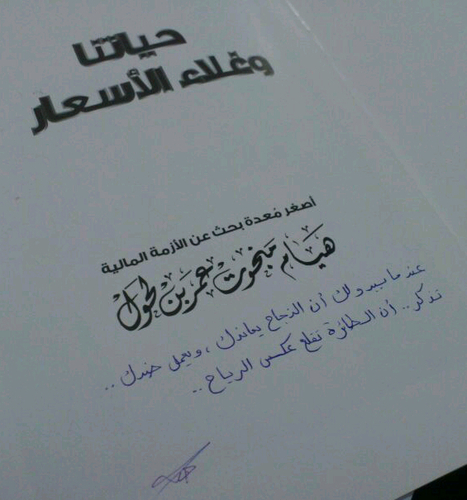 حياتنا
وغلاء الأسعار
أصغر مُعدة بحث عن الأزمة المالية
هيام منحوت عمر بن لحول
عندما يبدو لك أن النجاح يعاندك , ويعمل ضدك ..
تذكر .. أن الطائرة تقلع عكس الرياح ..